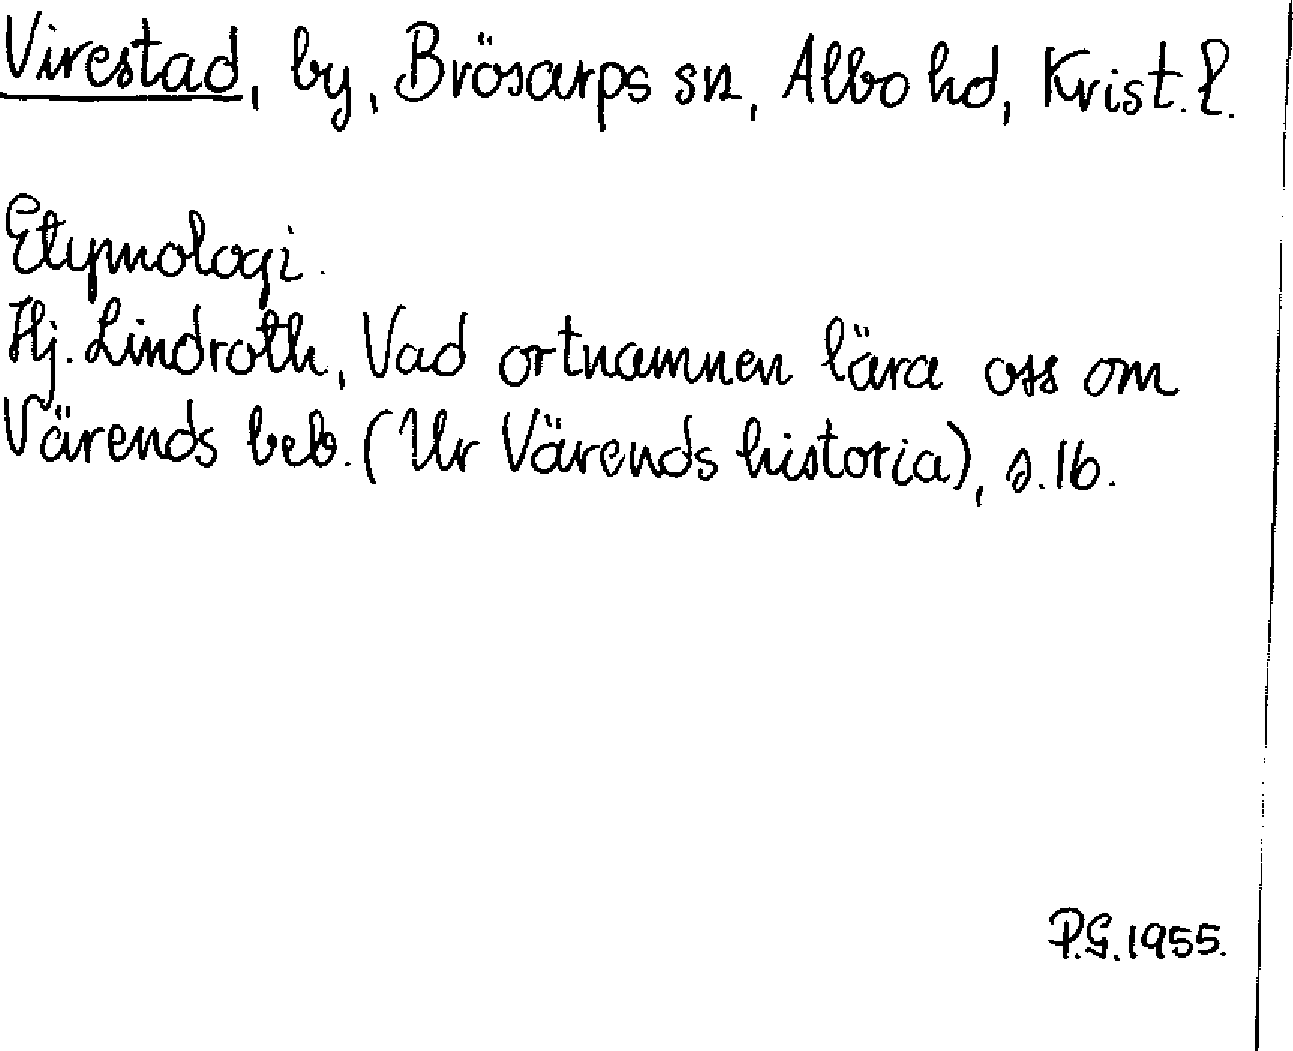 Virestad, by, Brösarps sn, Albo hd, Krist. l.
Etymologi.
Hj. Lindroth, Vad ortnamnen lära oss om
Värends beb. (Ur Värends historia), s. 16.
P.G. 1955.